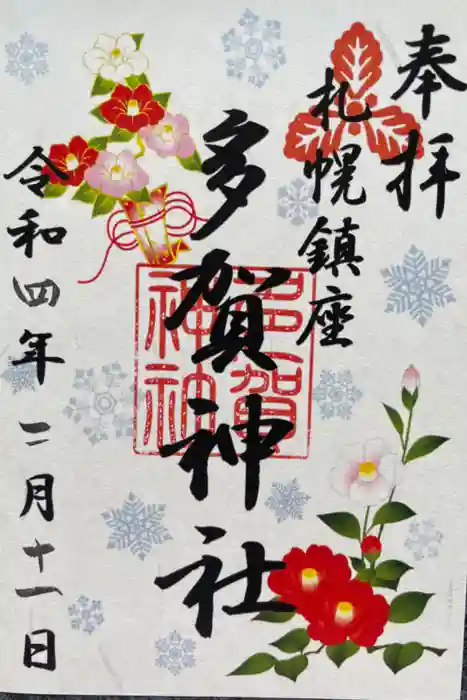 奉拝
札幌鎮座
多賀神社
多賀神社
令和四年二月十一日